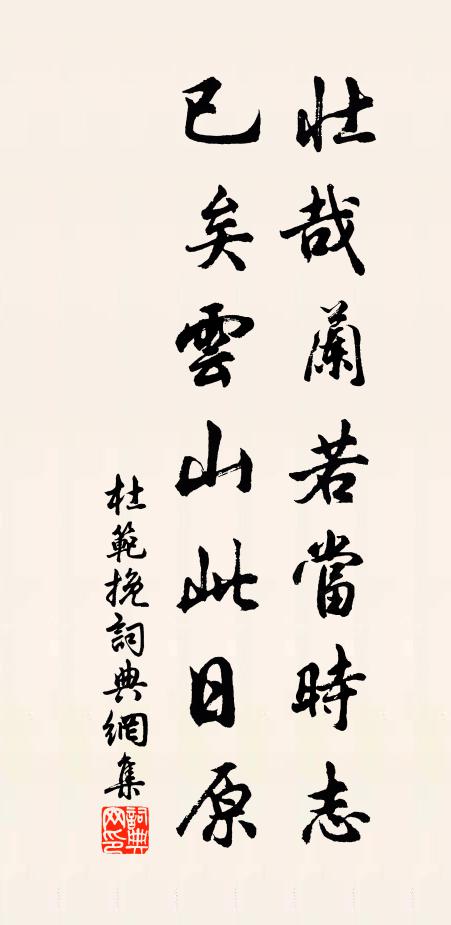 壯哉蘭若當時志
已矣雲山此日原
杜範挽詞典網集
詞典
网印